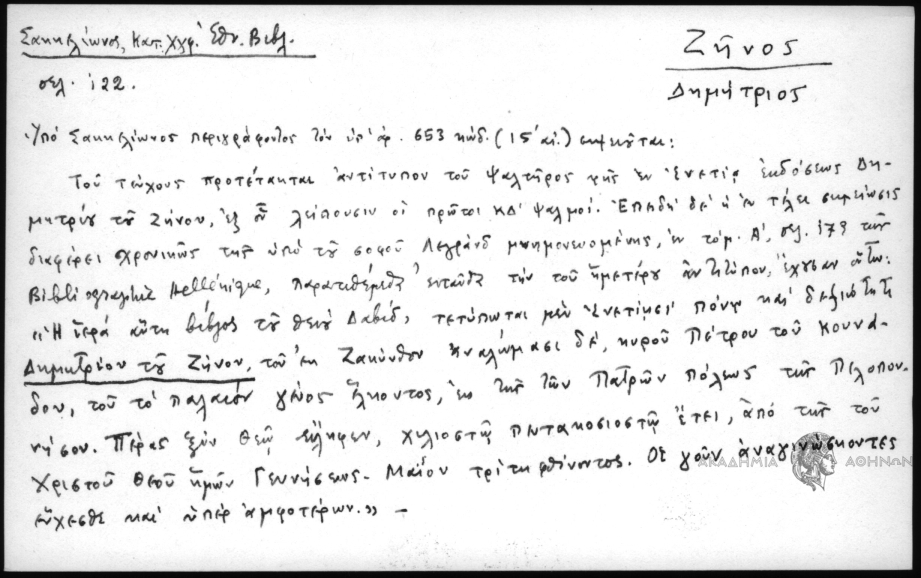 Σακκελίωνος, Κατ. Χγφ. Εθν. Βιβλ.
σελ. 122.
Ζῆνος
Δημήτριος
Ὑπό Σακκελίωνος περιγράφοντος τον ὑπ' ἀρ. 653 κώδ. (15' αἰ.) σημειοῦται:
Τοῦ τεύχους προτέτακται ἀντίτυπον τοῦ Ψαλτῆρος τῆς ἐν Ἑνετίᾳ ἐκδόσεως Δη-
μητρίου τοῦ Ζήνου, ἐξ οὗ λείπουσιν οἱ πρῶτοι ΚΔ' ψαλμοί. Ἐπειδή δέ ἡ ἐν τέλει σημείωσις
διαφέρει χρονικῶς τῆς ὑπό τοῦ σοφοῦ Λεγράνδ μνημονευομένης, ἐν τόμ. Α', σελ. 173 τῆς
Bibliographie Hellénique, παρατιθέμεθα ἐνταῦθα τήν τοῦ ἡμετέρου ἀντιτύπου, ἔχουσαν οὕτω:
«Ἡ ἱερά αὕτη βίβλος τοῦ θείου Δαβίδ, τετύπωται μέν Ἐνετίησι πόνῳ καί δεξιότητι
Δημητρίου τοῦ Ζήνου, τοῦ ἐκ Ζακύνθου ἀναλώμασι δέ, κυροῦ Πέτρου τοῦ Κουνά-
δου, τοῦ τό παλαιόν γένος ἕλκοντος, ἐκ τῆς τῶν Πατρῶν πόλεως τῆς Πελοπον-
νήσου. Πέρας ξύν θεῷ εἴληφεν, χιλιοστῷ πεντακοσιοστῷ ἔτει, ἀπό τῆς τοῦ
Χριστοῦ Θεοῦ ἡμῶν Γεννήσεως. Μαΐου τρίτῃ φθίνοντος. Οἱ γοῦν ἀναγινώσκοντες
εὔχεσθε καί ὑπέρ ἀμφοτέρων.» —
ΑΚΑΔΗΜΙΑ ΑΘΗΝΩΝ